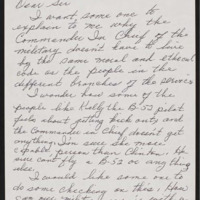 Dear Sir
I want some one to
explain to me why the
Commander In Chief of the
military doesn't have to live
by the same moral and ethical
code as the people in the
different branches of the service
I wonder how some of the
people like Kelly the B-52 pilot
feels about getting kick out, and
the Commander in Chief doesn't get
anything. I'm sure she more
capable person than Clinton. He
sure can't fly a B-52 or any thing
else.
I would like some one to
do some checking on this. How
can